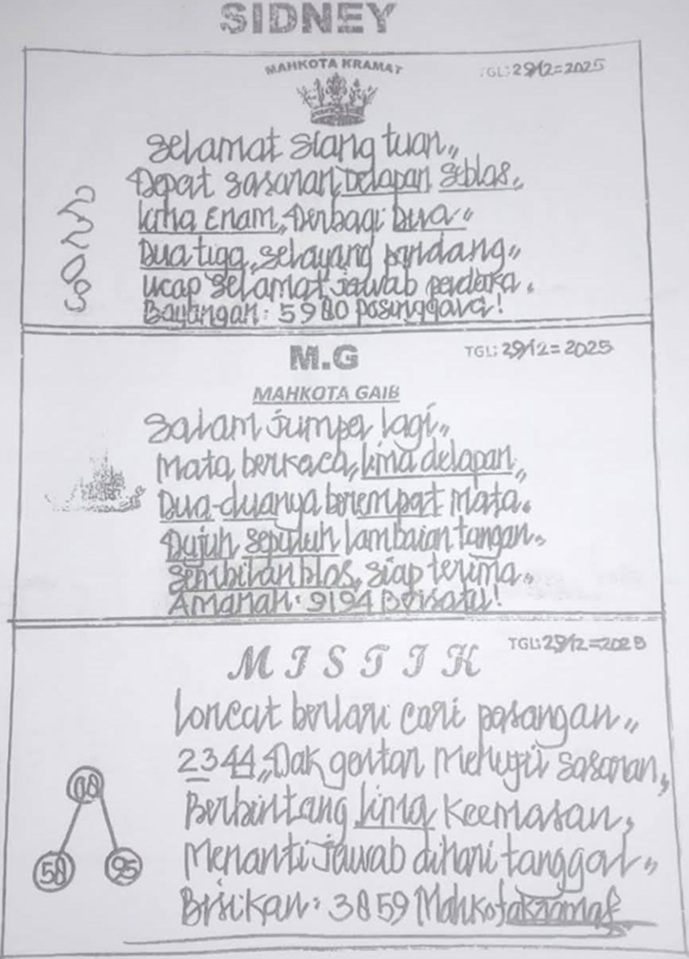 SIDNEY
MAHKOTA KRAMAT
TGL: 29/12=2025
Selamat siang tuan,,
Depat sasaran, Delapan Seblas,
Lima Enam,, Derbagi Dua,,
Dua tiga, selayang pandang,,
Ucap selamat jawab perdaka.
Bayangan: 5980 pasanggava!
M.G
TGL: 29/12=2025
MAHKOTA GAIB
Salam jumpa lagi,,
Mata, berkaca, lima delapan,,
Dua-duanya berempat mata.
Dujuh sepuluh lambaian tangan,,
Sembilan blas, siap terima,,
Amanah: 9194 Bersatu!
MISTIK
TGL: 29/12=2025
Loncat berlari cari pasangan,,
2344,, Dak gentar menuju sasaran,
Berbintang lima keemasan,
Menanti jawab dihari tanggal,,
58
95
Bisikan: 3859 Mahkota kramat